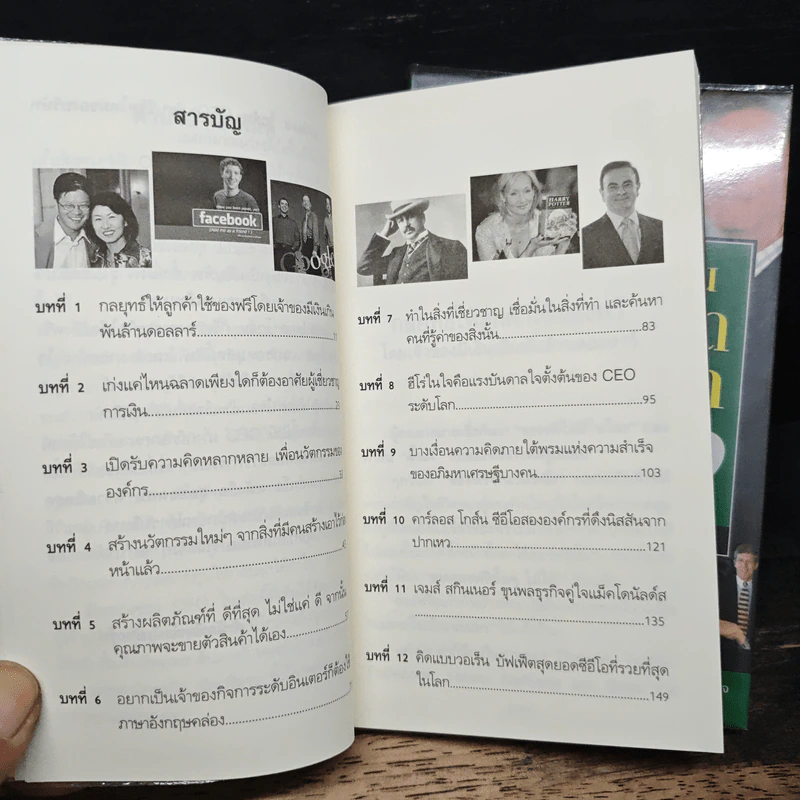 สารบัญ
facebook
Google
บทที่ 1 กลยุทธ์ให้ลูกค้าใช้ของฟรีโดยเจ้าของมีเงินเกิน
พันล้านดอลลาร์
บทที่ 2 เก่งแค่ไหนฉลาดเพียงใดก็ต้องอาศัยผู้เชี่ยวชาญ
การเงิน
บทที่ 3 เปิดรับความคิดหลากหลาย เพื่อนวัตกรรมของ
องค์กร
บทที่ 4 สร้างนวัตกรรมใหม่ๆ จากสิ่งที่มีคนสร้างเอาไว้ก่อน
หน้าแล้ว
บทที่ 5 สร้างผลิตภัณฑ์ที่ ดีที่สุด ไม่ใช่แค่ ดี จากนั้น
คุณภาพจะขายตัวสินค้าได้เอง
บทที่ 6 อยากเป็นเจ้าของกิจการระดับอินเตอร์ก็ต้องใช้
ภาษาอังกฤษคล่อง
HARRY
POTTER
บทที่ 7 ทำในสิ่งที่เชี่ยวชาญ เชื่อมั่นในสิ่งที่ทำ และค้นหา
คนที่รู้ค่าของสิ่งนั้น 83
บทที่ 8 ฮีโร่ในใจคือแรงบันดาลใจตั้งต้นของ CEO
ระดับโลก 95
บทที่ 9 บางเงื่อนความคิดภายใต้พรมแห่งความสำเร็จ
ของอภิมหาเศรษฐีบางคน 103
บทที่ 10 คาร์ลอส โกส์น ซีอีโอสององค์กรที่ดึงนิสสันจาก
ปากเหว 121
บทที่ 11 เจมส์ สกินเนอร์ ขุนพลธุรกิจคู่ใจแม็คโดนัลด์ส
135
บทที่ 12 คิดแบบวอเร็น บัฟเฟ็ตสุดยอดซีอีโอที่รวยที่สุด
ในโลก 149